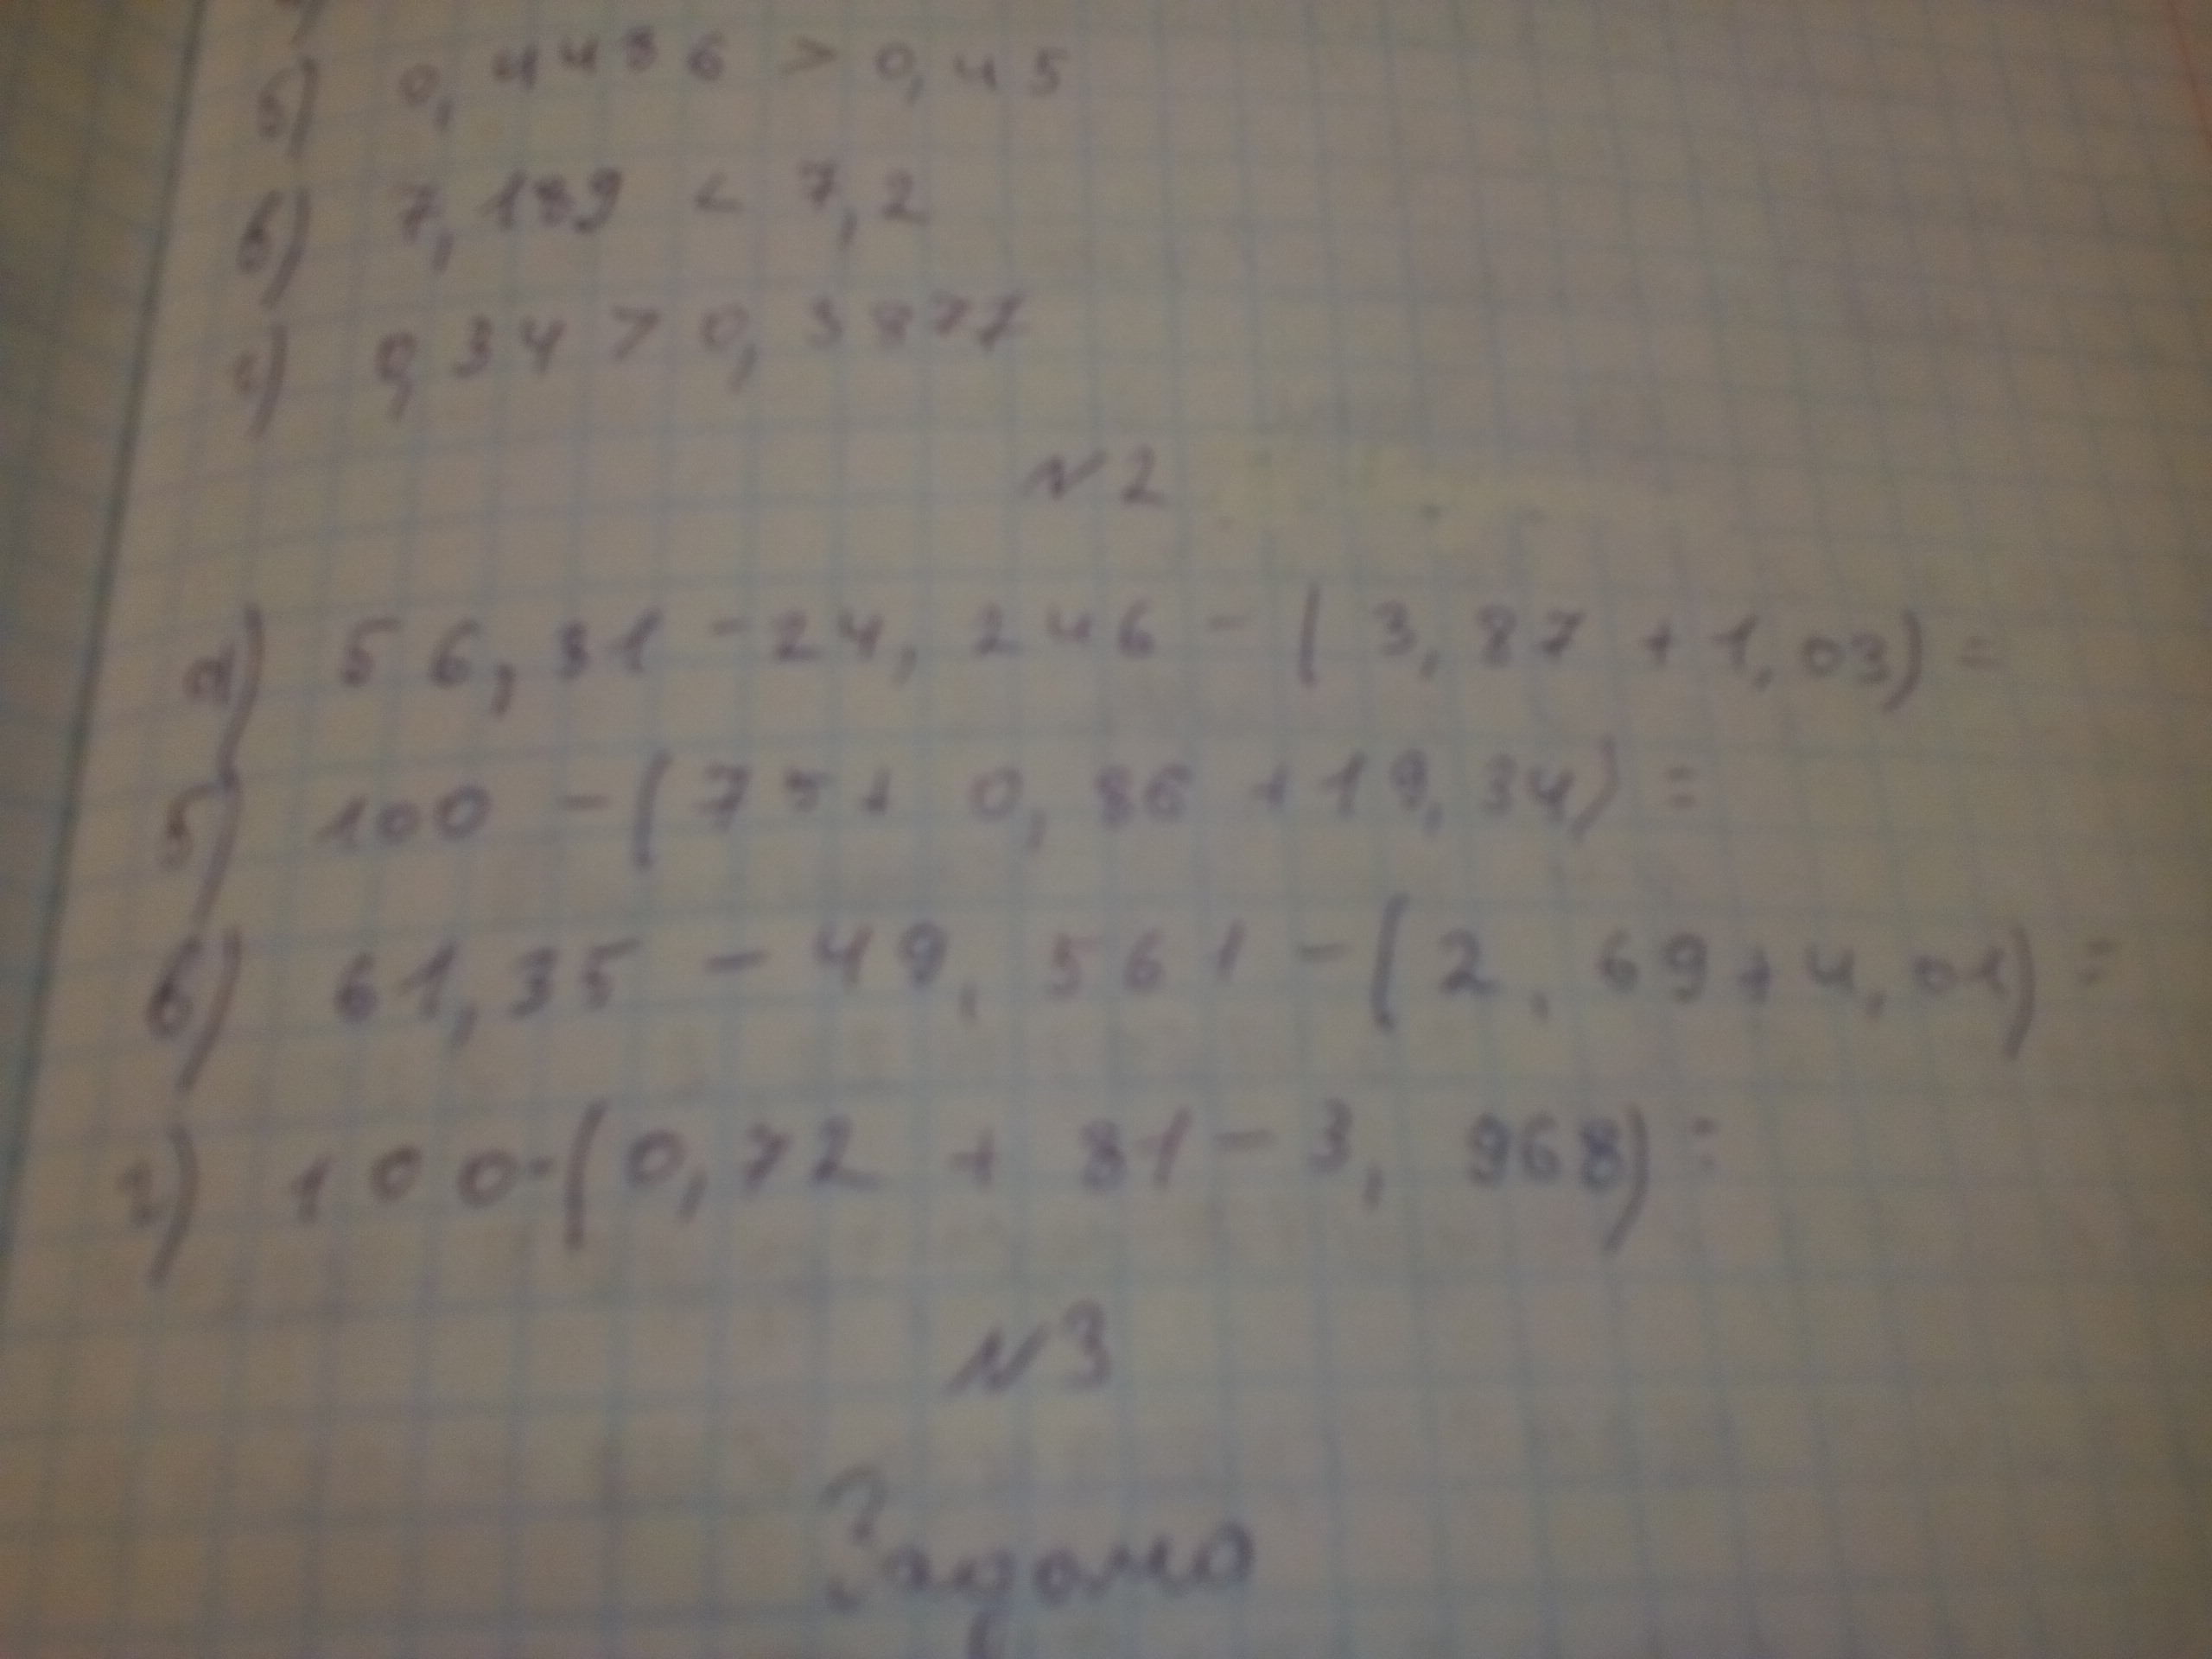 б) 0,4486 > 0,45
в) 7,189 < 7,2
г) 0,34 > 0,3877
N2
а) 56,81 - 24,246 - (3,87 + 1,03) =
б) 100 - (75 + 0,86 + 19,34) =
в) 61,35 - 49,561 - (2,69 + 4,01) =
г) 100 - (0,72 + 81 - 3,968) =
N3
Задача